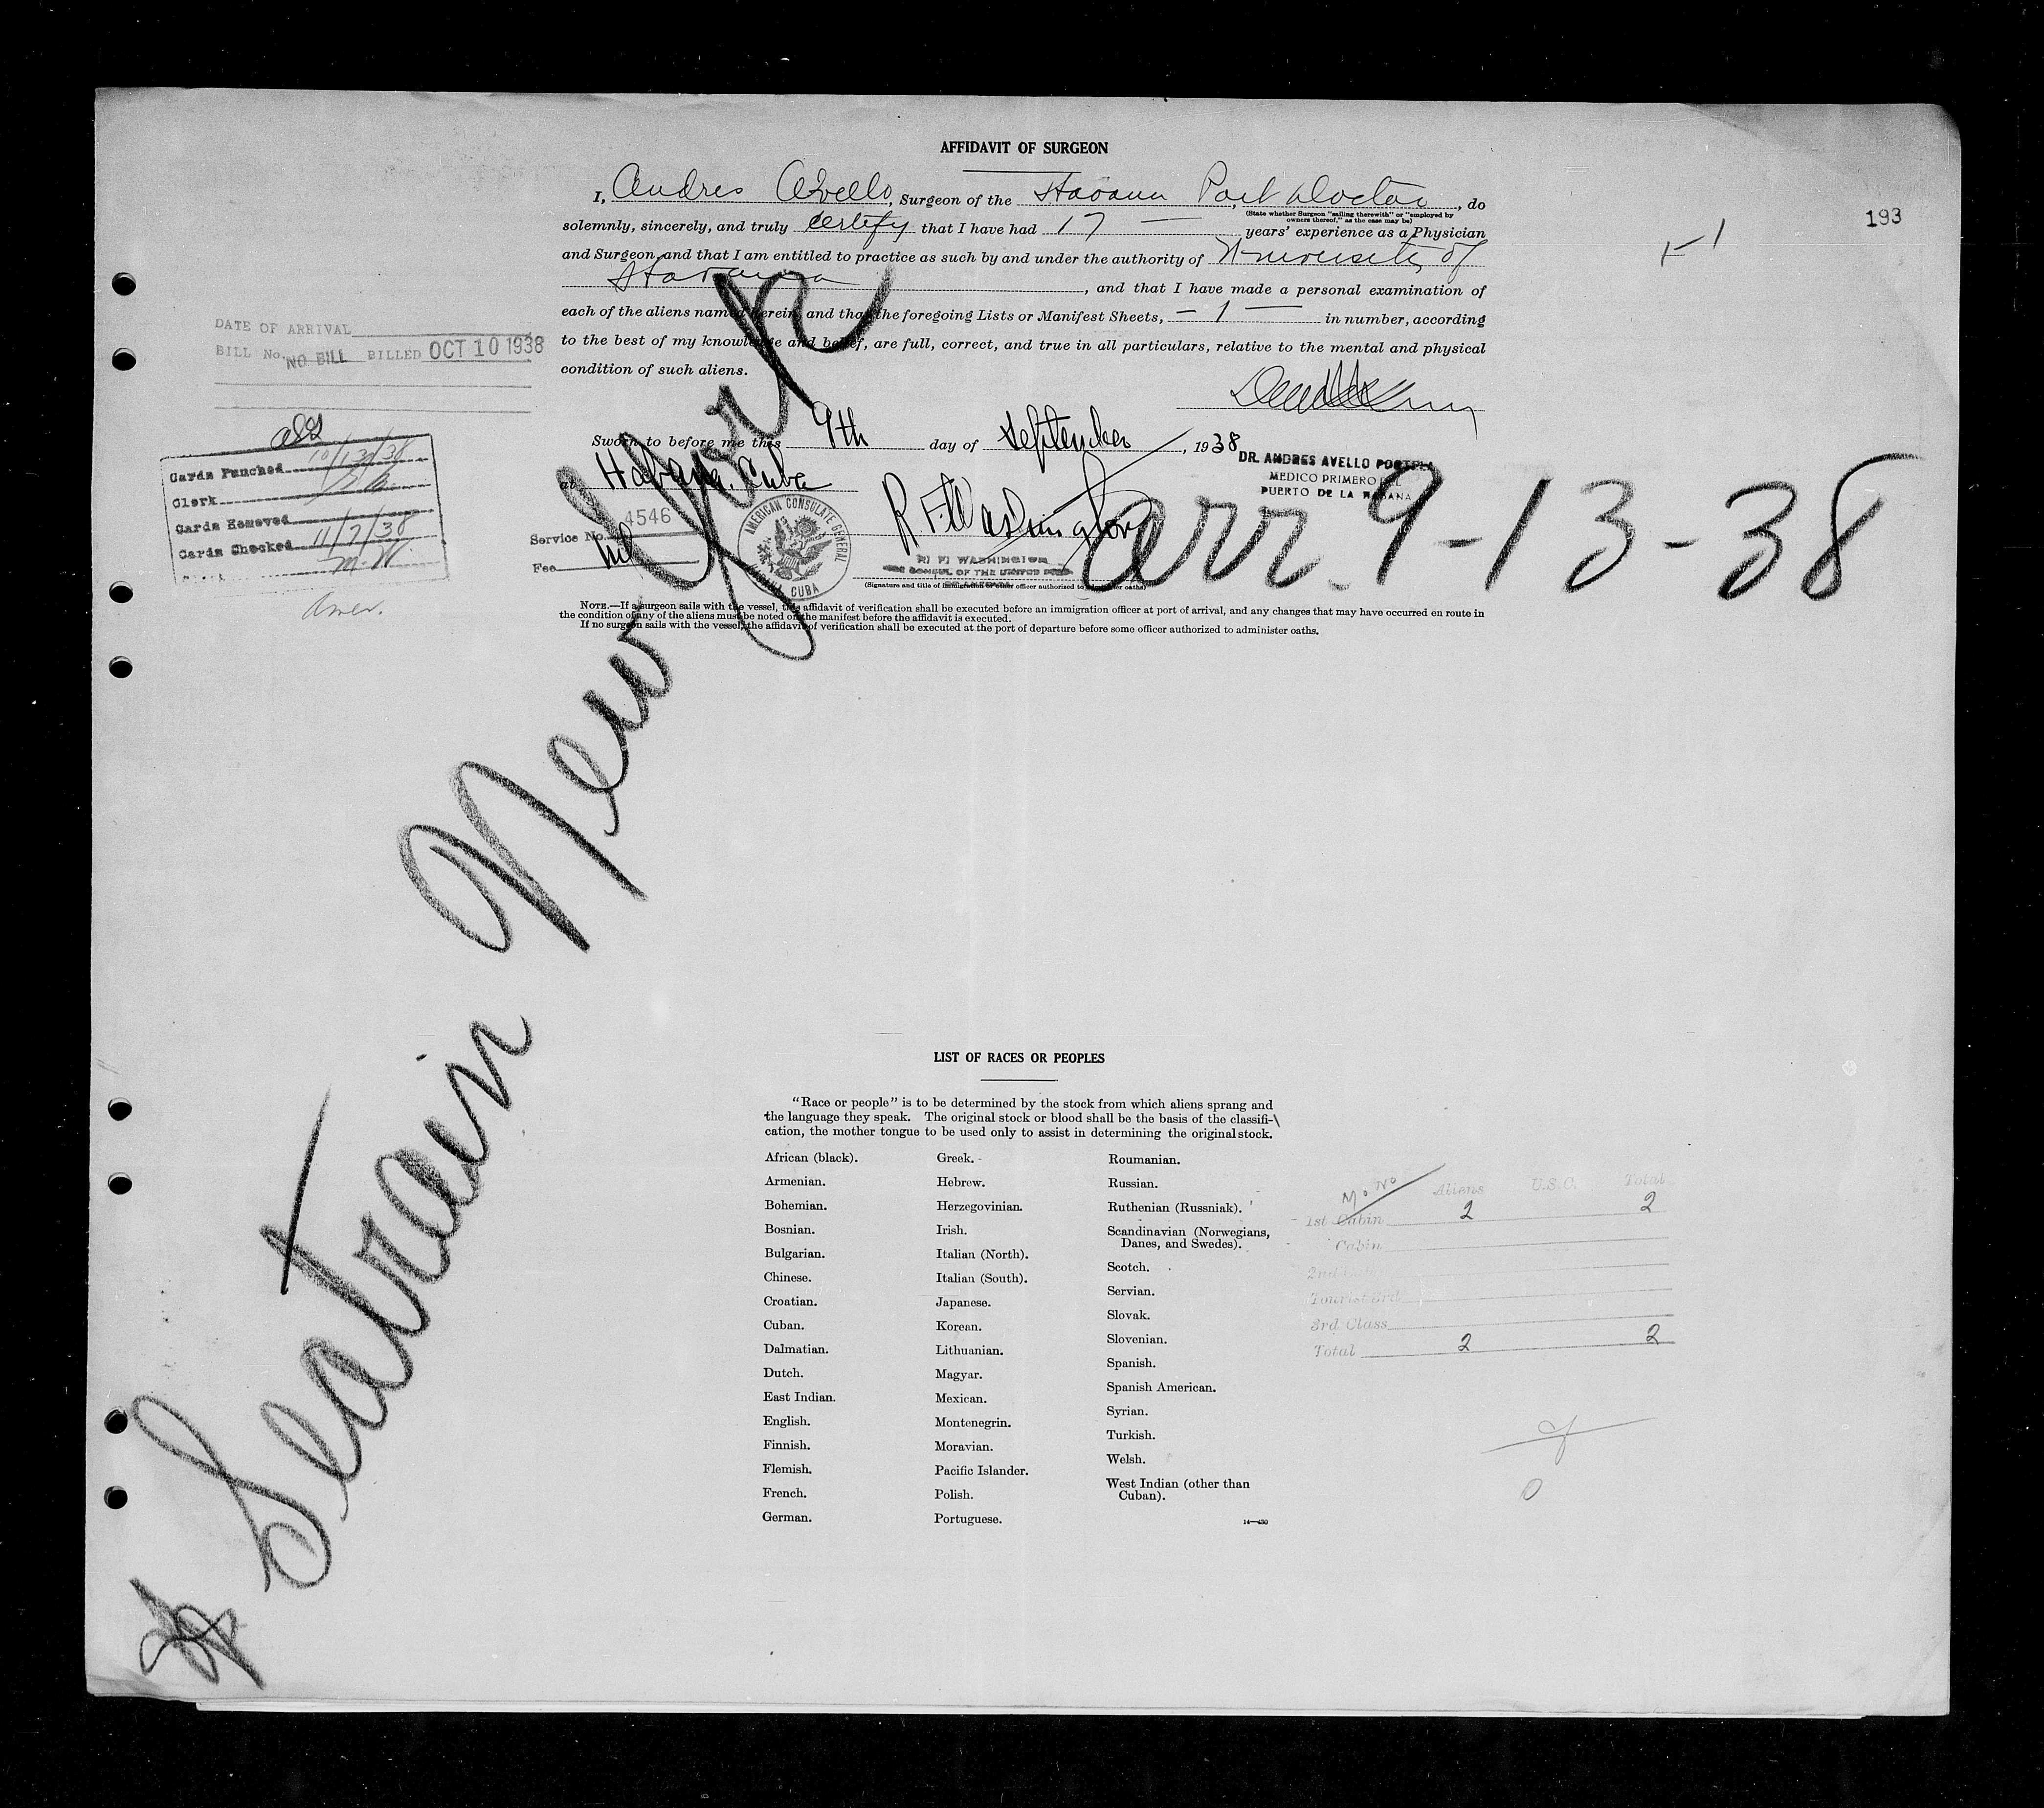 AFFIDAVIT OF SURGEON
I, Andres Avello, Surgeon of the Havana Port Doctor, do
(State whether Surgeon "sailing therewith" or "employed by
owners thereof," as the case may be)
193
solemnly, sincerely, and truly certify that I have had 17 — years' experience as a Physician
and Surgeon, and that I am entitled to practice as such by and under the authority of University of
Havana, and that I have made a personal examination of
each of the aliens named herein and that the foregoing Lists or Manifest Sheets, — 1 — in number, according
to the best of my knowledge and belief, are full, correct, and true in all particulars, relative to the mental and physical
condition of such aliens.
DATE OF ARRIVAL
BILL No. NO BILL BILLED OCT 10 1938
Sworn to before me this 9th day of September, 1938
at Habana, Cuba
DR. ANDRES AVELLO PORTELA
MEDICO PRIMERO DEL
PUERTO DE LA HABANA
Cards Punched 10/13/38
Clerk
Cards Removed
Cards Checked 11/7/38
M.W.
4546
Service No.
Fee
AMERICAN CONSULATE GENERAL
HABANA, CUBA
R. F. Washington
R. F. WASHINGTON
(Signature and title of immigration or other officer authorized to administer oaths)
arr. 9-13-38
NOTE.—If a surgeon sails with the vessel, this affidavit of verification shall be executed before an immigration officer at port of arrival, and any changes that may have occurred en route in
the condition of any of the aliens must be noted on the manifest before the affidavit is executed.
If no surgeon sails with the vessel, the affidavit of verification shall be executed at the port of departure before some officer authorized to administer oaths.
Seatrain New York
LIST OF RACES OR PEOPLES
"Race or people" is to be determined by the stock from which aliens sprang and
the language they speak. The original stock or blood shall be the basis of the classifi-
cation, the mother tongue to be used only to assist in determining the original stock.
African (black).
Armenian.
Bohemian.
Bosnian.
Bulgarian.
Chinese.
Croatian.
Cuban.
Dalmatian.
Dutch.
East Indian.
English.
Finnish.
Flemish.
French.
German.
Greek.
Hebrew.
Herzegovinian.
Irish.
Italian (North).
Italian (South).
Japanese.
Korean.
Lithuanian.
Magyar.
Mexican.
Montenegrin.
Moravian.
Pacific Islander.
Polish.
Portuguese.
Roumanian.
Russian.
Ruthenian (Russniak).
Scandinavian (Norwegians,
Danes, and Swedes).
Scotch.
Servian.
Slovak.
Slovenian.
Spanish.
Spanish American.
Syrian.
Turkish.
Welsh.
West Indian (other than
Cuban).
14—430
Aliens U.S.C. Total
1st Cabin 2 2
Cabin
2nd
Tourist 3rd
3rd Class
Total 2 2
0